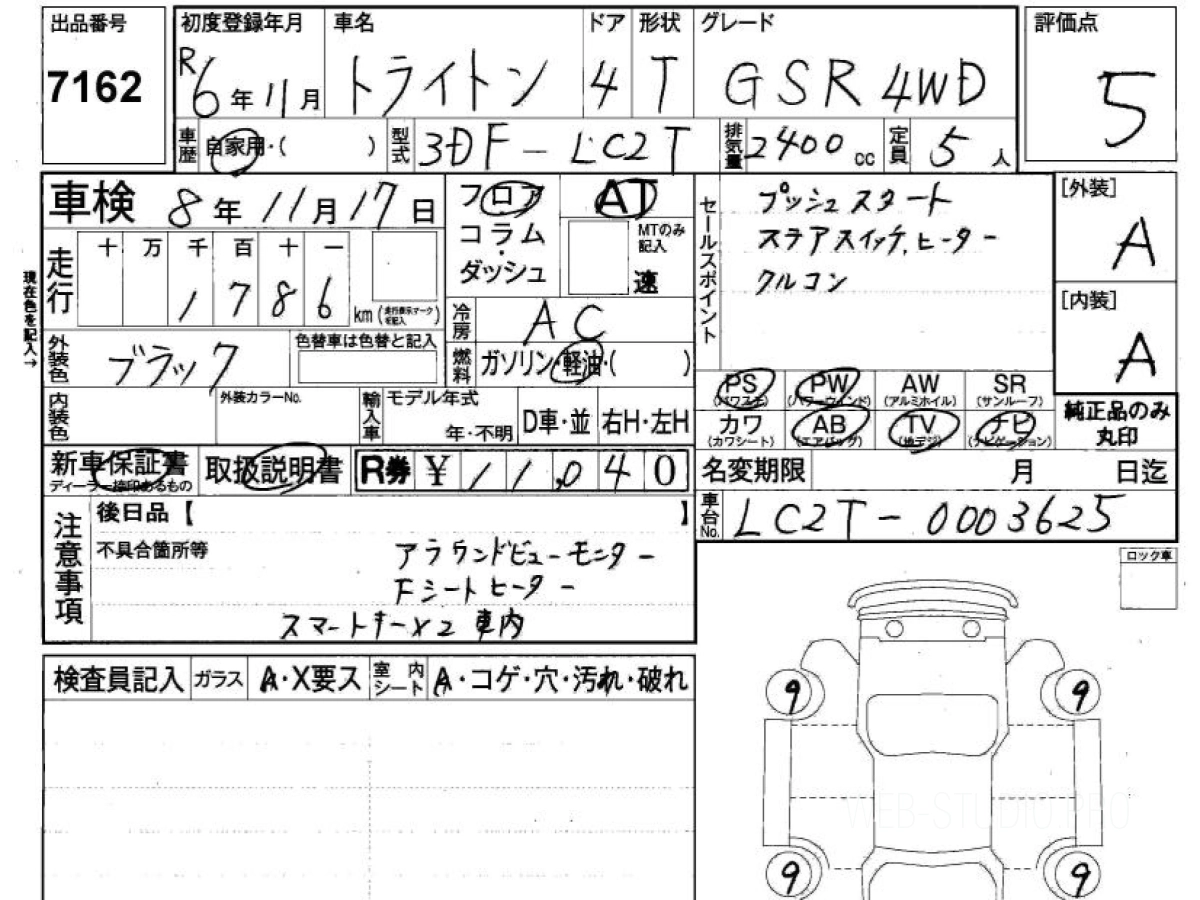 出品番号 初度登録年月 車名 ドア 形状 グレード 評価点
7162 R6年11月 トライトン 4 T GSR 4WD 5
車歴 自家用・( ) 型式 3DF-LC2T 排気量 2400cc 定員 5人
車検 8年11月17日 フロア AT セールスポイント プッシュスタート [外装]
コラム MTのみ記入 ステアスイッチ,ヒーター A
走行 十 万 千 百 十 一 ・ダッシュ 速 クルコン
1786 km(走行表示マークを記入) 冷房 AC [内装]
現在色を記入→ A
外装色 ブラック 色替車は色替と記入 燃料 ガソリン・軽油・( )
PS PW AW SR
(パワステ) (パワーウィンド) (アルミホイル) (サンルーフ)
内装色 外装カラーNo. 輸入車 モデル年式 年・不明 D車・並 右H・左H カワ AB TV ナビ 純正品のみ
(カワシート) (エアバッグ) (地デジ) (ナビゲーション) 丸印
新車保証書 取扱説明書 R券 ¥11,040 名変期限 月 日迄
ディーラー捺印あるもの
注意事項 後日品【 】 車台No. LC2T-0003625
不具合箇所等 アラウンドビューモニター ロック車
Fシートヒーター
スマートキーX2 車内
検査員記入 ガラス A・X要ス 室内シート A・コゲ・穴・汚れ・破れ
9 9
WEB-STUDIO.PRO
9 9